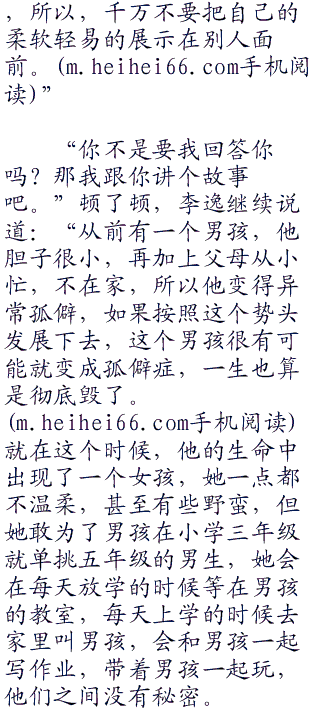 ，所以，千万不要把自己的
柔软轻易的展示在别人面
前。(m.heihei66.com手机阅
读)”
“你不是要我回答你
吗？那我跟你讲个故事
吧。”顿了顿，李逸继续说
道：“从前有一个男孩，他
胆子很小，再加上父母从小
忙，不在家，所以他变得异
常孤僻，如果按照这个势头
发展下去，这个男孩很有可
能就变成孤僻症，一生也算
是彻底毁了。
(m.heihei66.com手机阅读)
就在这个时候，他的生命中
出现了一个女孩，她一点都
不温柔，甚至有些野蛮，但
她敢为了男孩在小学三年级
就单挑五年级的男生，她会
在每天放学的时候等在男孩
的教室，每天上学的时候去
家里叫男孩，会和男孩一起
写作业，带着男孩一起玩，
他们之间没有秘密。